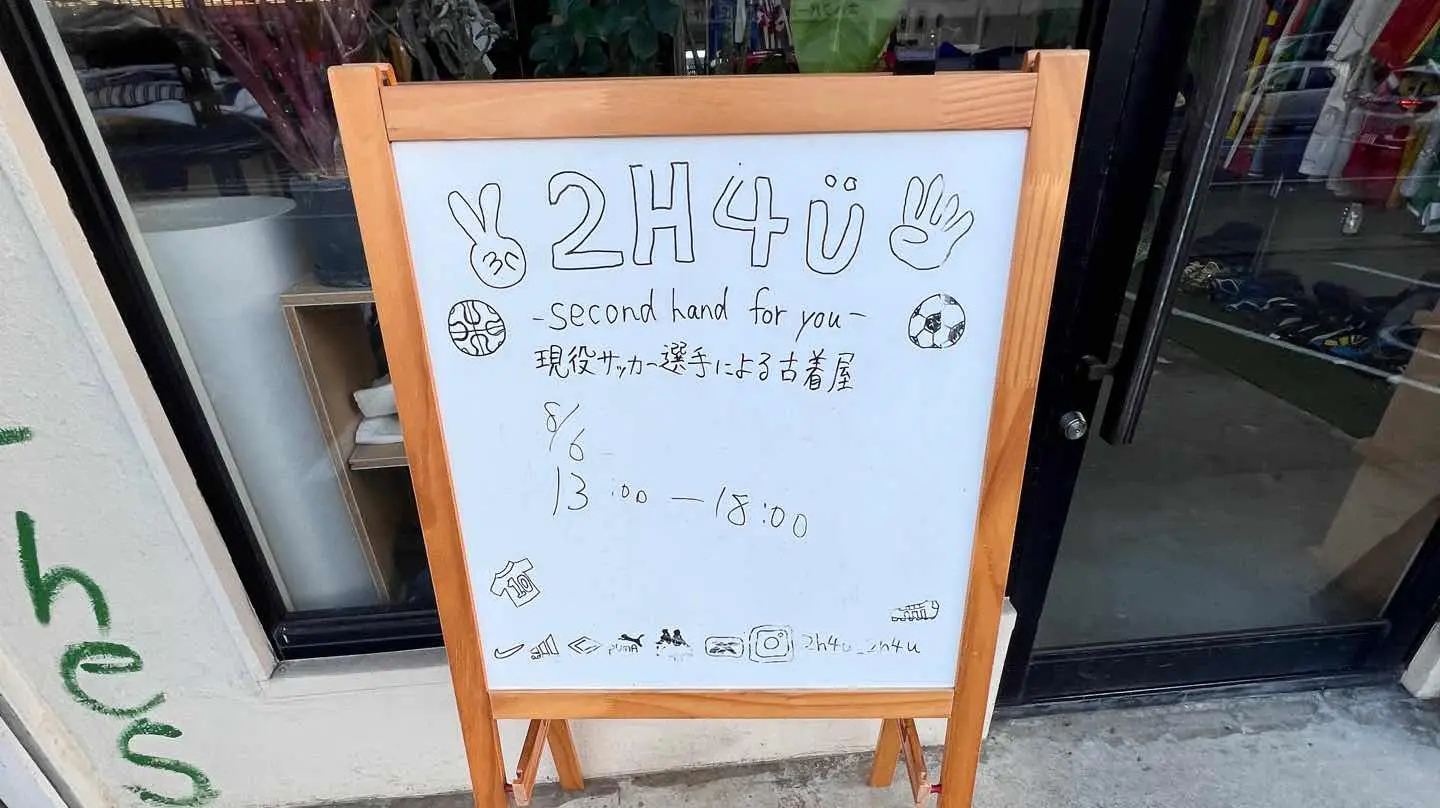 2H4Ü
-second hand for you-
現役サッカー選手による古着屋
8/6
13:00 — 18:00
10
PUMA
2h4u_2h4u
hes